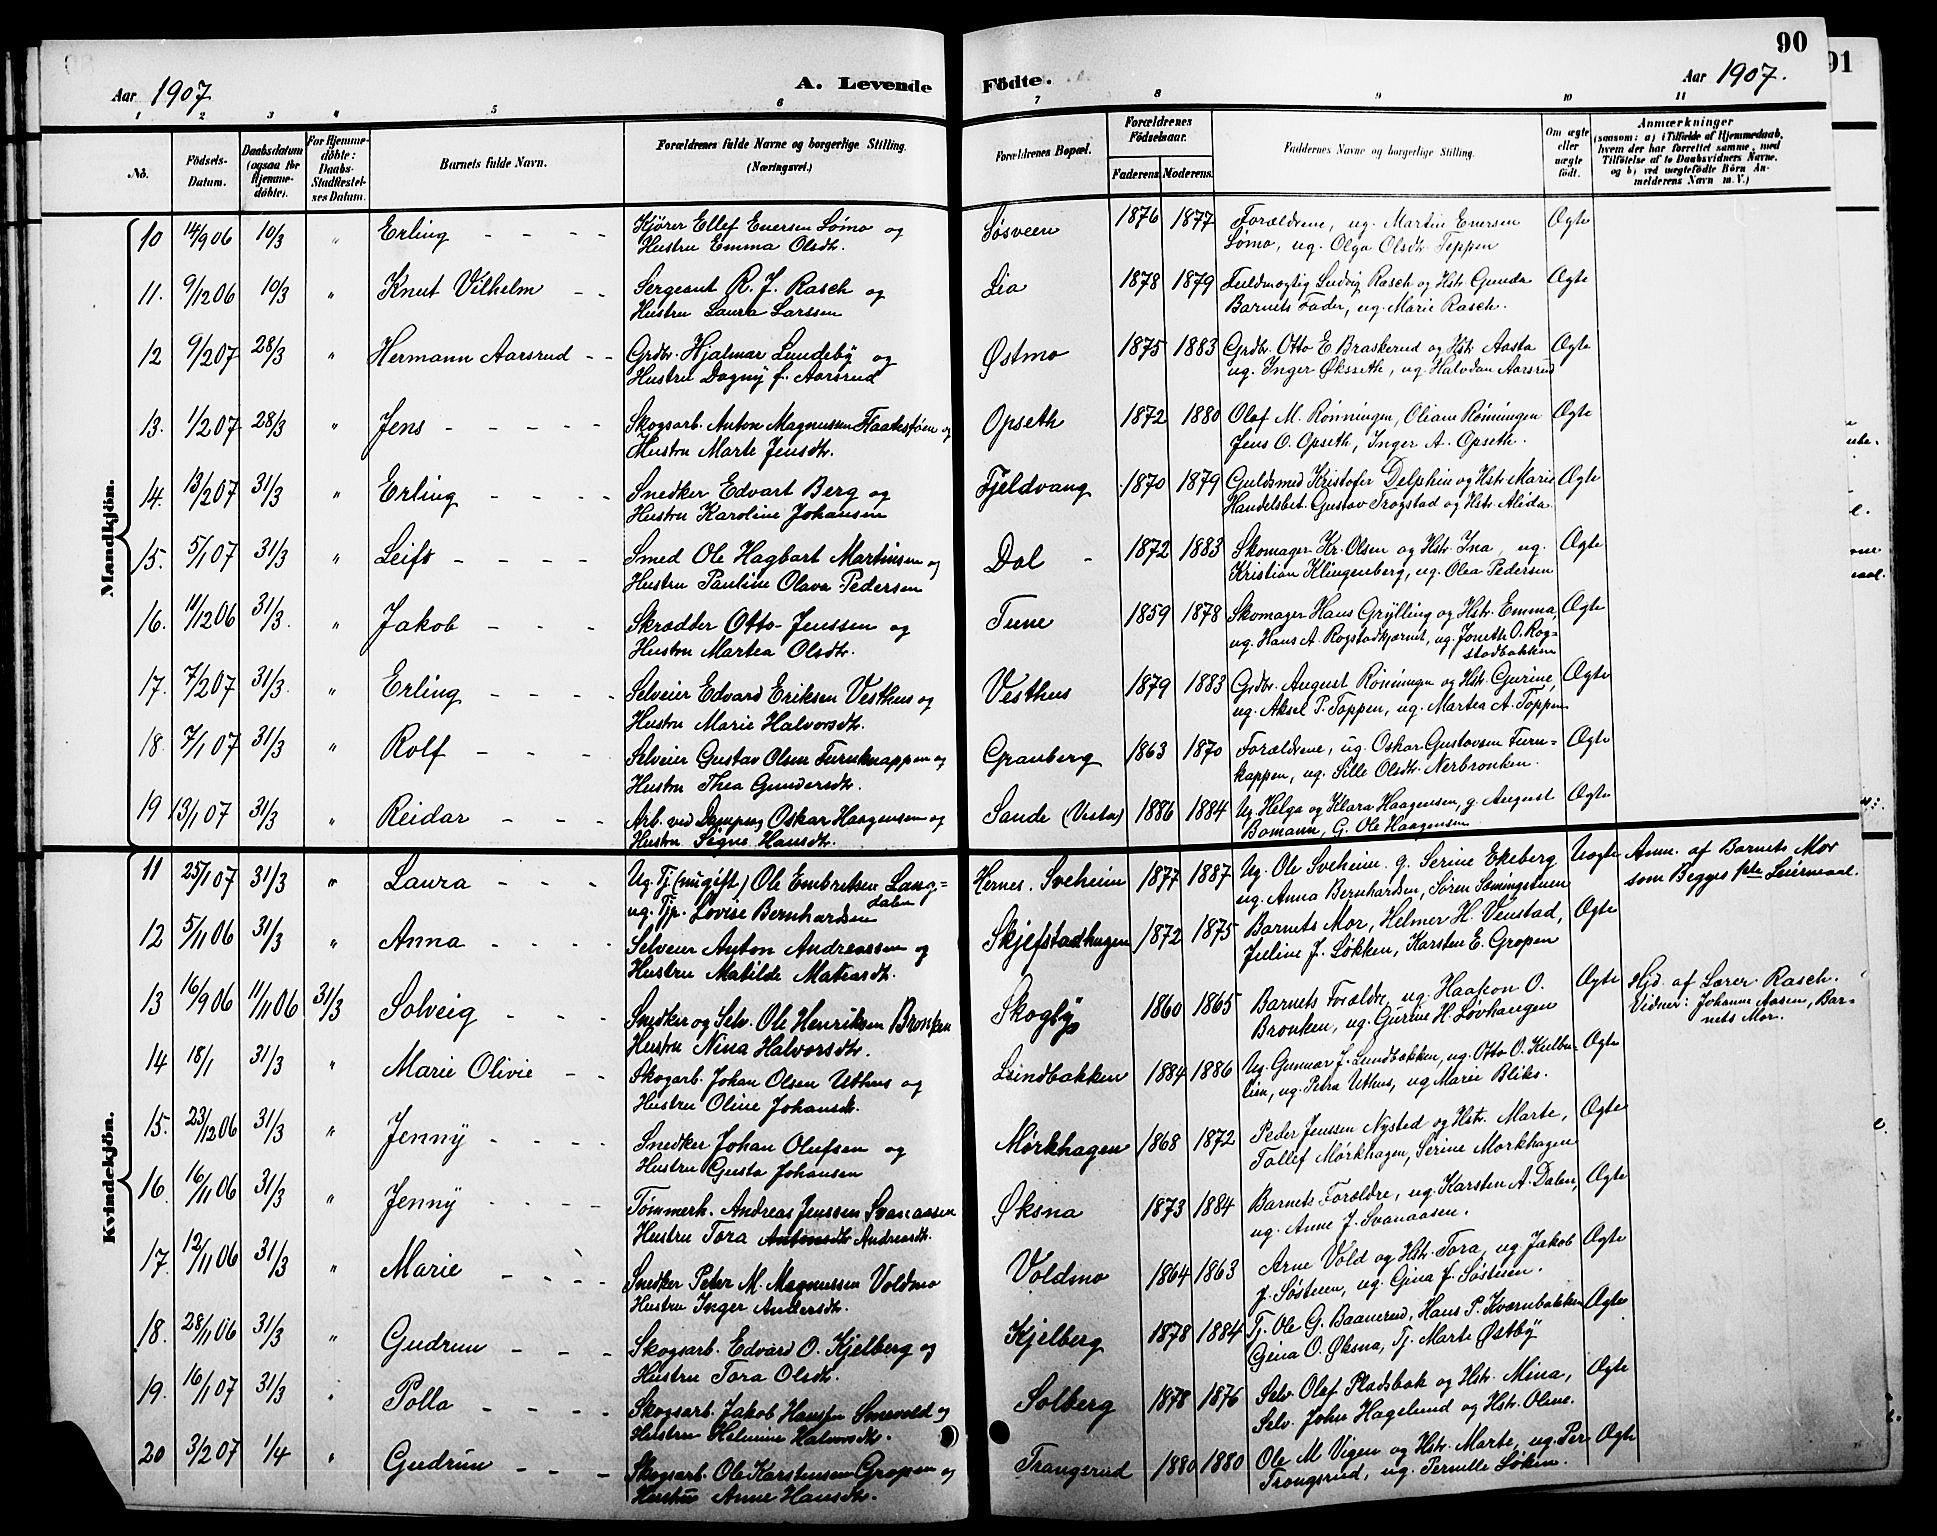 90
91
Aar 1907
A. Levende Födte.
Aar 1907.
1 2 3 4 5 6 7 8 9 10 11
No. Födsels-Datum. Daabsdatum (ogsaa for Hjemme-döbte). For Hjemme-döbte: Daabs-Stadfæstel-ses Datum. Barnets fulde Navn. Forældrenes fulde Navne og borgerlige Stilling. (Næringsvei.) Forældrenes Bopæl. Forældrenes Födselsaar. Faderens. Moderens. Faddernes Navne og borgerlige Stilling. Om ægte eller uægte født. Anmærkninger (saasom: a) i Tilfælde af Hjemmedaab, hvem der har forrettet samme, med Tilföielse af to Daabsvidners Navne. og b) ved uægtefödte Börn An-melderens Navn m. V.)
Mandkjön.
10 14/9 06 10/3 " Erling Kjører Ellef Enersen Sømo og 1876 1877 Forældrene, ug. Martin Enersen Ægte
Hustru Emma Olsdtr. Søsveen Sømo, ug. Olga Olsdtr. Teppen
11. 9/12 06 10/3 " Knut Vilhelm Sergeant R. J. Rasch og Lia 1878 1879 Fuldmægtig Ludvig Rasch og Hstr Gunda Ægte
Hustru Laura Larssen Barnets Fader, ug. Marie Rasch.
12 9/2 07 28/3 " Hermann Aarsrud Grdbr. Hjalmar Lundeby og Østmo 1875 1883 Grdbr. Otto E Braskerud og Hstr Aasta Ægte
Hustru Dagny f. Aarsrud ug. Inger Øksseth, ug. Halvdan Aarsrud
13. 1/2 07 28/3 " Jens Skogsarb. Anton Magnussen Haakstøen og Opseth 1872 1880 Olaf M. Rønningen, Oliane Rønningen Ægte
Hustru Marte Jensdtr. Jens O. Opseth, Inger A. Opseth.
14. 13/2 07 31/3 " Erling Snedker Edvart Berg og Fjeldvang 1870 1879 Guldsmed Kristofer Delphin og Hstr Marie Ægte
Hustru Karoline Johansen Handelsbet. Gustav Trøgstad og Hstr. Alida.
15. 5/1 07 31/3 " Leif Smed Ole Hagbart Martinsen og Dal 1872 1883 Skomager Kr. Olsen og Hstr Ina, ug. Ægte
Hustru Pauline Olava Pedersen Kristian Klingenberg, ug. Olea Pedersen
16. 11/12 06 31/3. " Jakob Skrædder Otto Jenssen og Tune 1859 1878 Skomager Hans Grylling og Hstr. Emma, Ægte
Hustru Martea Olsdtr. ug. Hans A. Rogstadkjærnet, ug. Jonette O. Rog-
stadbakken
17. 7/2 07 31/3. " Erling Selveier Edvard Eriksen Vesthus og Vesthus 1879 1883 Grdbr. August Rønningen og Hstr. Gurine, Ægte
Hustru Marie Halvorsdtr. ug. Aksel P. Toppen, ug. Martea A. Toppen
18. 7/1 07 31/3 " Rolf Selveier Gustav Olsen Furuknappen og Granberg 1863 1870 Forældrene, ug. Oskar Gustavsen Furu- Ægte
Hustru Thea Gundersdtr. kappen, ug. Sille Olsdtr. Nerbronken.
19 13/1 07 31/3 " Reidar Arb. ved Dampsag Oskar Haagensen og Sande (Vestad) 1886 1884 Ug. Helga og Klara Haagensen, g. August Ægte
Hustru Signe Hansdtr. Bomann, G. Ole Haagensen
Kvindekjön.
11 25/1 07 31/3 " Laura Ug. Tj. (nu gift) Ole Embretsen Lang- Hernes. Sveheim 1877 1887 Ug. Ole Sveheim. g. Serine Ekeberg Uægte Anm. af Barnets Mor
dalen
ug. Tjp. Lovise Bernhardsen ug. Anna Bernhardsen, Søren Sæmingstuen som Begges 1ste Leiermaal.
12 5/11 06 31/3 " Anna Selveier Anton Andreassen og Skjefstadhagen 1872 1875 Barnets Mor, Helmer H. Venstad, Ægte
Hustru Matilde Matiasdtr. Juline J. Løkken, Karsten E. Gropen
13 16/9 06 11/11 06 31/3 Solveig Snedker og Selv. Ole Henriksen Bronken Skogly 1860 1865 Barnets Forældre, ug. Haakon O. Ægte Hjd. af Lærer Rasch.
Hustru Nina Halvorsdtr. Bronken, ug. Gurine H. Løvhaugen Vidner: Johanne Aasen, Bar-
nets Mor.
14 18/1 31/3 " Marie Olivie Skogarb. Johan Olsen Uthus og Lundbakken 1884 1886 Ug. Gunnar J. Lundbakken, ug. Otto O. Kulbu- Ægte
Hustru Oline Johansdtr. lien, ug. Petra Uthus, ug Marie Bliks.
15. 23/12 06 31/3 " Jenny Snedker Johan Olufsen og Mørkhagen 1868 1872 Peder Jenssen Nysted og Hstr. Marte, Ægte
Hustru Gusta Johansen Tollef Mørkhagen, Serine Mørkhagen
16. 16/11 06 31/3 " Jenny Tømmerh. Andreas Jenssen Svanaasen Øksna 1873 1884 Barnets Forældre, ug. Karsten A. Dalen, Ægte
Hustru Tora Antonsdtr Andreasdtr. ug. Anne J. Svanaasen.
17. 12/11 06 31/3 " Marie Snedker Peter M. Magnussen Voldmo Voldmo 1864 1863 Arne Vold og Hstr. Tora, ug Jakob Ægte
Hustru Inger Andersdtr. J. Søsteen, ug. Gina J. Søsteen.
18. 28/11 06 31/3 " Gudrun Skogsarb. Edvard O. Kjelberg og Kjelberg 1878 1884 Tj. Ole G. Baanerud, Hans P. Kværnbakken Ægte
Hustru Tora Olsdtr. Gina O. Øksna, Tj. Marte Østby
19. 16/1 07 31/3 " Polla Skogsarb. Jakob Hansen Smevold og Solberg 1878 1876 Selv. Olaf Pladsbak og Hstr. Mina, Ægte
Hustru Helmine Halvorsdtr. Selv. John Hagelund og Hstr. Oline.
20 3/2 07 1/4 " Gudrun Skogsarb. Ole Karstensen Gropen og Trangsrud 1880 1880 Ole M Vigen og Hstr. Marte, ug. Per Ægte
Hustru Anne Hansdtr. Trangsrud, ug. Pernille Løken.